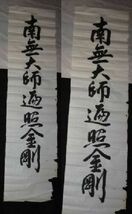 南無大師遍照金剛
南無大師遍照金剛